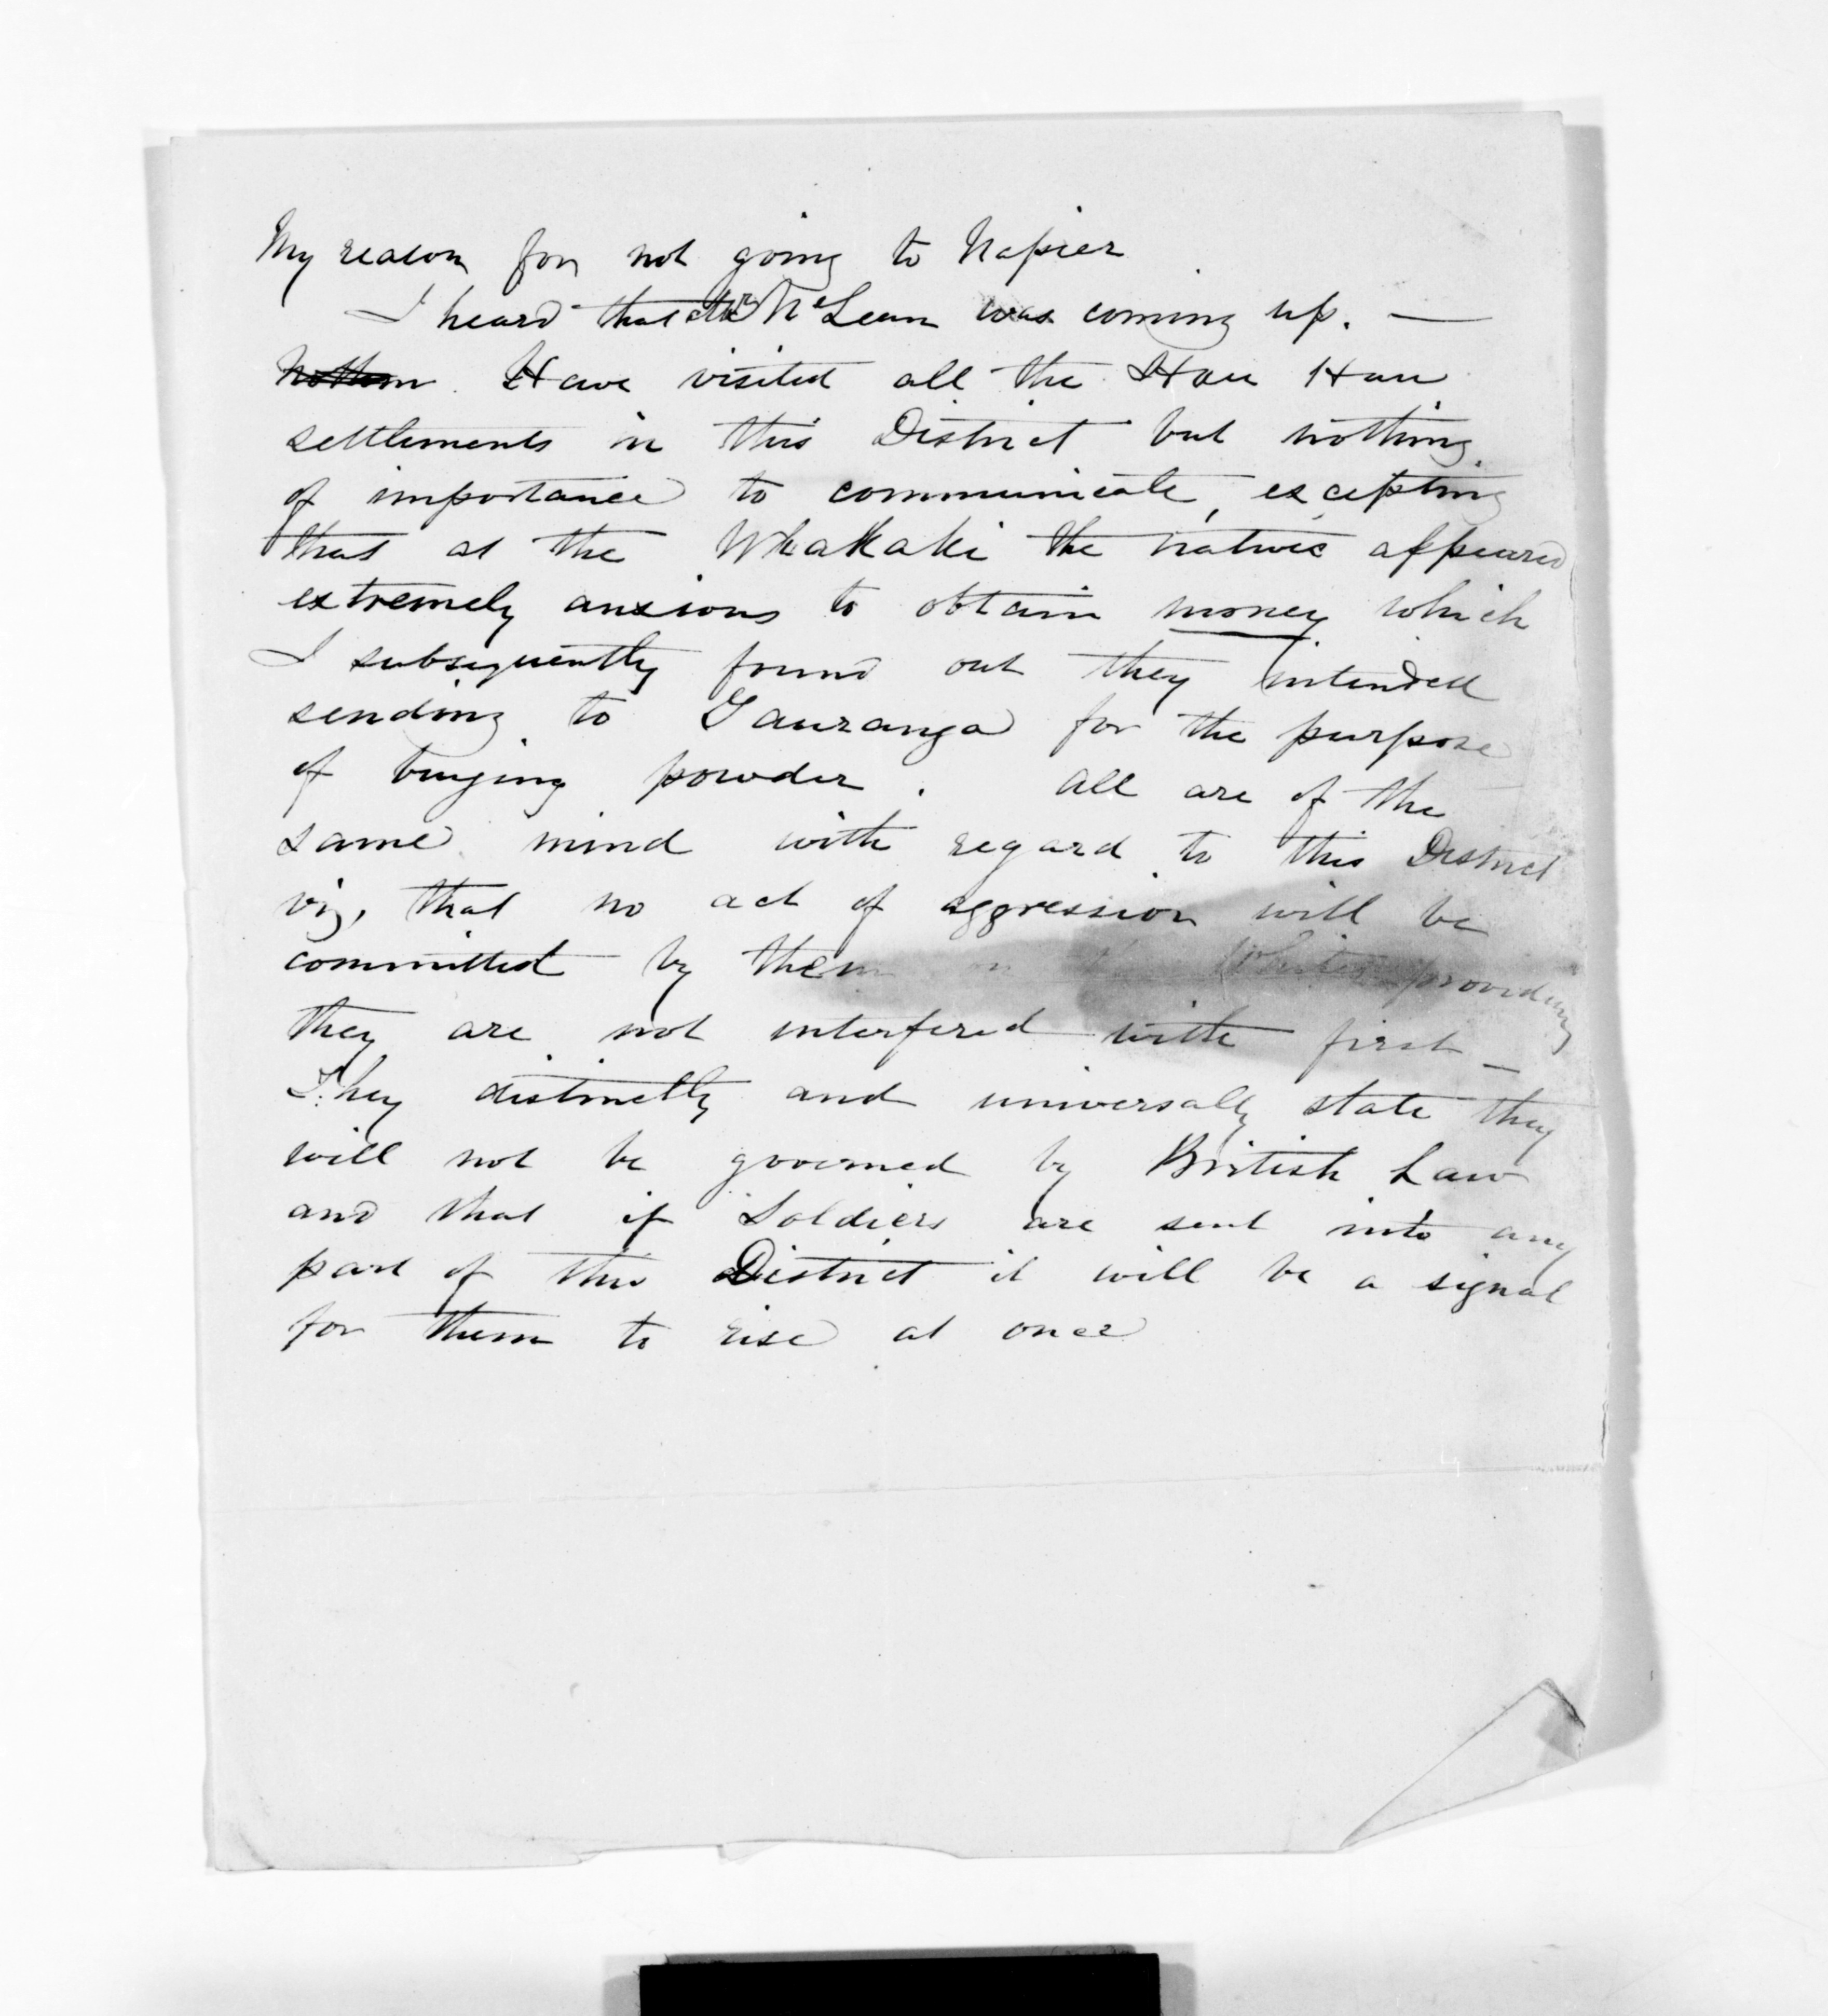 My reason for not going to Napier
I heard that Mr McLean was coming up. —
Have visited all the Hau Hau
settlements in this District but nothing
of importance to communicate, excepting
that at the Whakaki the natives appeared
extremely anxious to obtain money which
I subsequently found out they intended
sending to Tauranga for the purpose
of buying powder. All are of the
same mind with regard to this District
viz, that no act of aggression will be
committed by them on the Whites providing
they are not interfered with first —
They distinctly and universally state they
will not be governed by British Law
and that if Soldiers are sent into any
part of this District it will be a signal
for them to rise at once